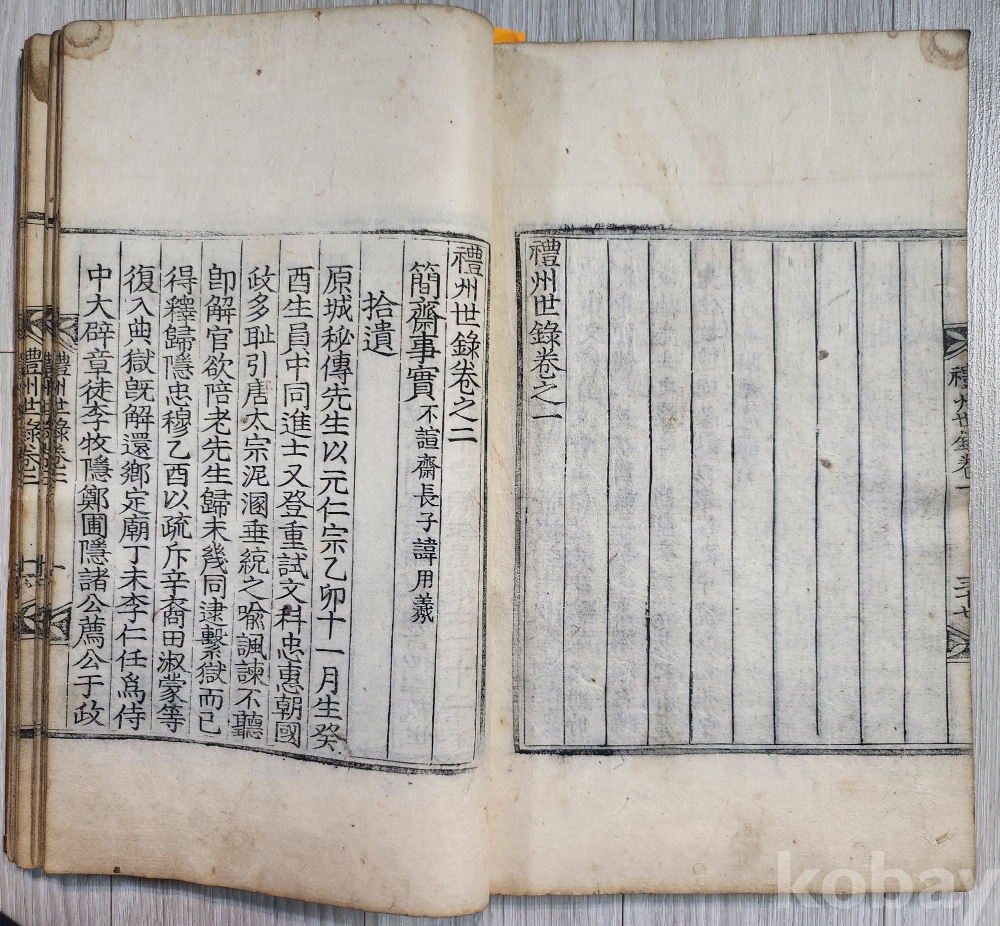 禮州世錄卷之一
禮州世錄卷一
三十七
禮州世錄卷之二
簡齋事實 不諠齋長子諱用羲
拾遺
原城秘傳先生以元仁宗乙卯十一月生癸
酉生員中同進士又登重試文科忠惠朝國
政多耻引唐太宗泥溷垂統之喩諷諫不聽
卽解官欲陪老先生歸未幾同逮繫獄而已
得釋歸隱忠穆乙酉以疏斥辛裔田淑蒙等
復入典獄旣解還鄕定廟丁未李仁任爲侍
中大辟章徒李牧隱鄭圃隱諸公薦公于政
禮州世錄卷二
一
禮州世錄卷二
kobay